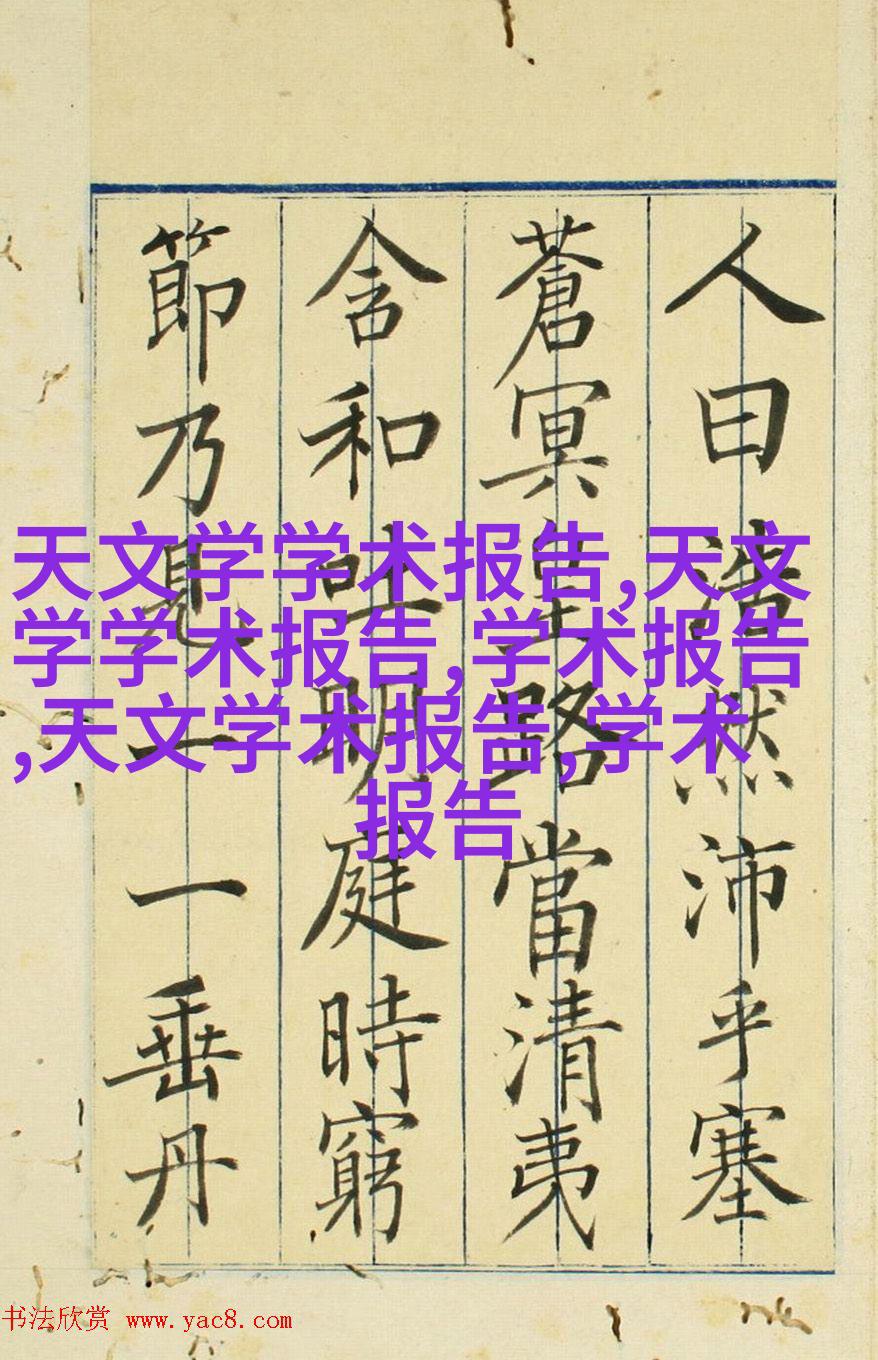 人曰浩然沛乎塞
蒼冥皇路當清夷
含和吐明庭時窮
節乃見一一垂丹
天文学学术报告,天文
学学术报告,学术报告
,天文学术报告,学术
报告
书法欣赏 www.yac8.com